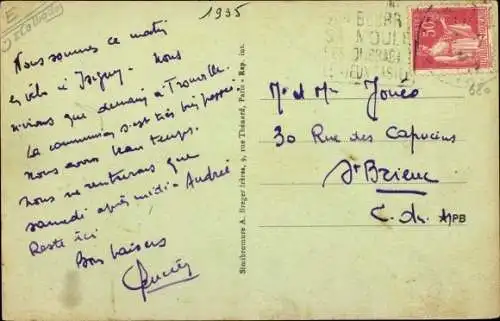 1935
Nous sommes ce matin
en vélo à Isigny. Nous
n'irons que demain à Trouville.
La communion s'est très bien passée.
Nous avons beau temps.
Nous ne rentrerons que
samedi après midi. André
Reste ici
Bons baisers
BEURR
50c
Sincbromure A. Breger frères, 9, rue Thénard, Paris - Rep. int.
M. et Mme
30 Rue des Capucins
St Brieuc
C. du N
APB
680